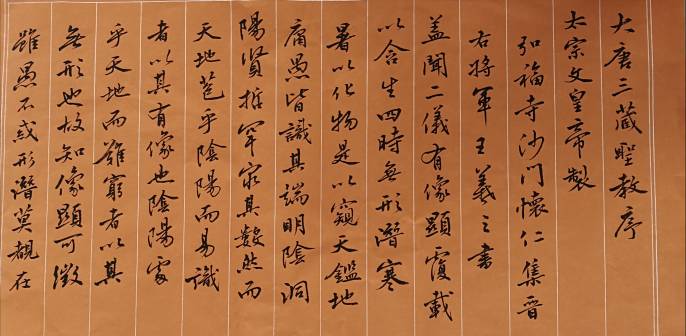 大唐三藏聖教序
太宗文皇帝製
弘福寺沙門懷仁集晉
右將軍王羲之書
蓋聞二儀有像顯覆載
以含生四時無形潛寒
暑以化物是以窺天鑑地
庸愚皆識其端明陰洞
陽賢哲罕窮其數然而
天地苞乎陰陽而易識
者以其有像也陰陽處
乎天地而難窮者以其
無形也故知像顯可徵
雖愚不惑形潛莫覩在